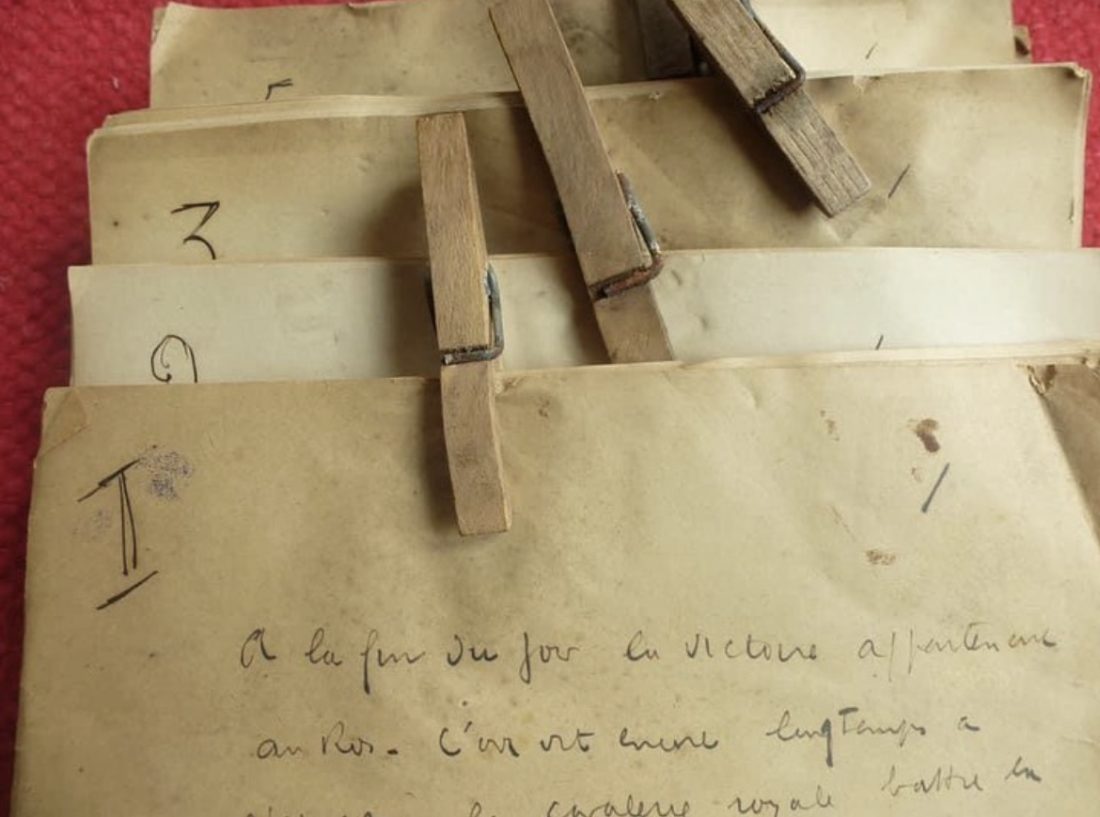 5
/
3
/
2
I
/
A la fin du jour la victoire appartenait
au Roi. L'on vit encore longtemps a
la cavalerie royale battre la